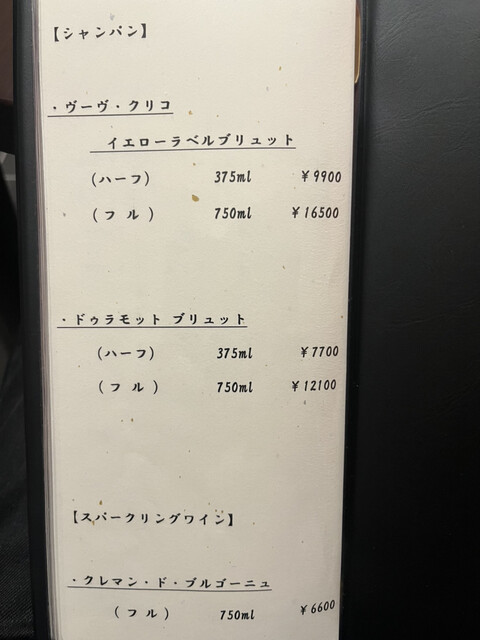 【シャンパン】
・ヴーヴ・クリコ
イエローラベルブリュット
(ハーフ) 375ml ¥9900
(フル) 750ml ¥16500
・ドゥラモット ブリュット
(ハーフ) 375ml ¥7700
(フル) 750ml ¥12100
【スパークリングワイン】
・クレマン・ド・ブルゴーニュ
(フル) 750ml ¥6600